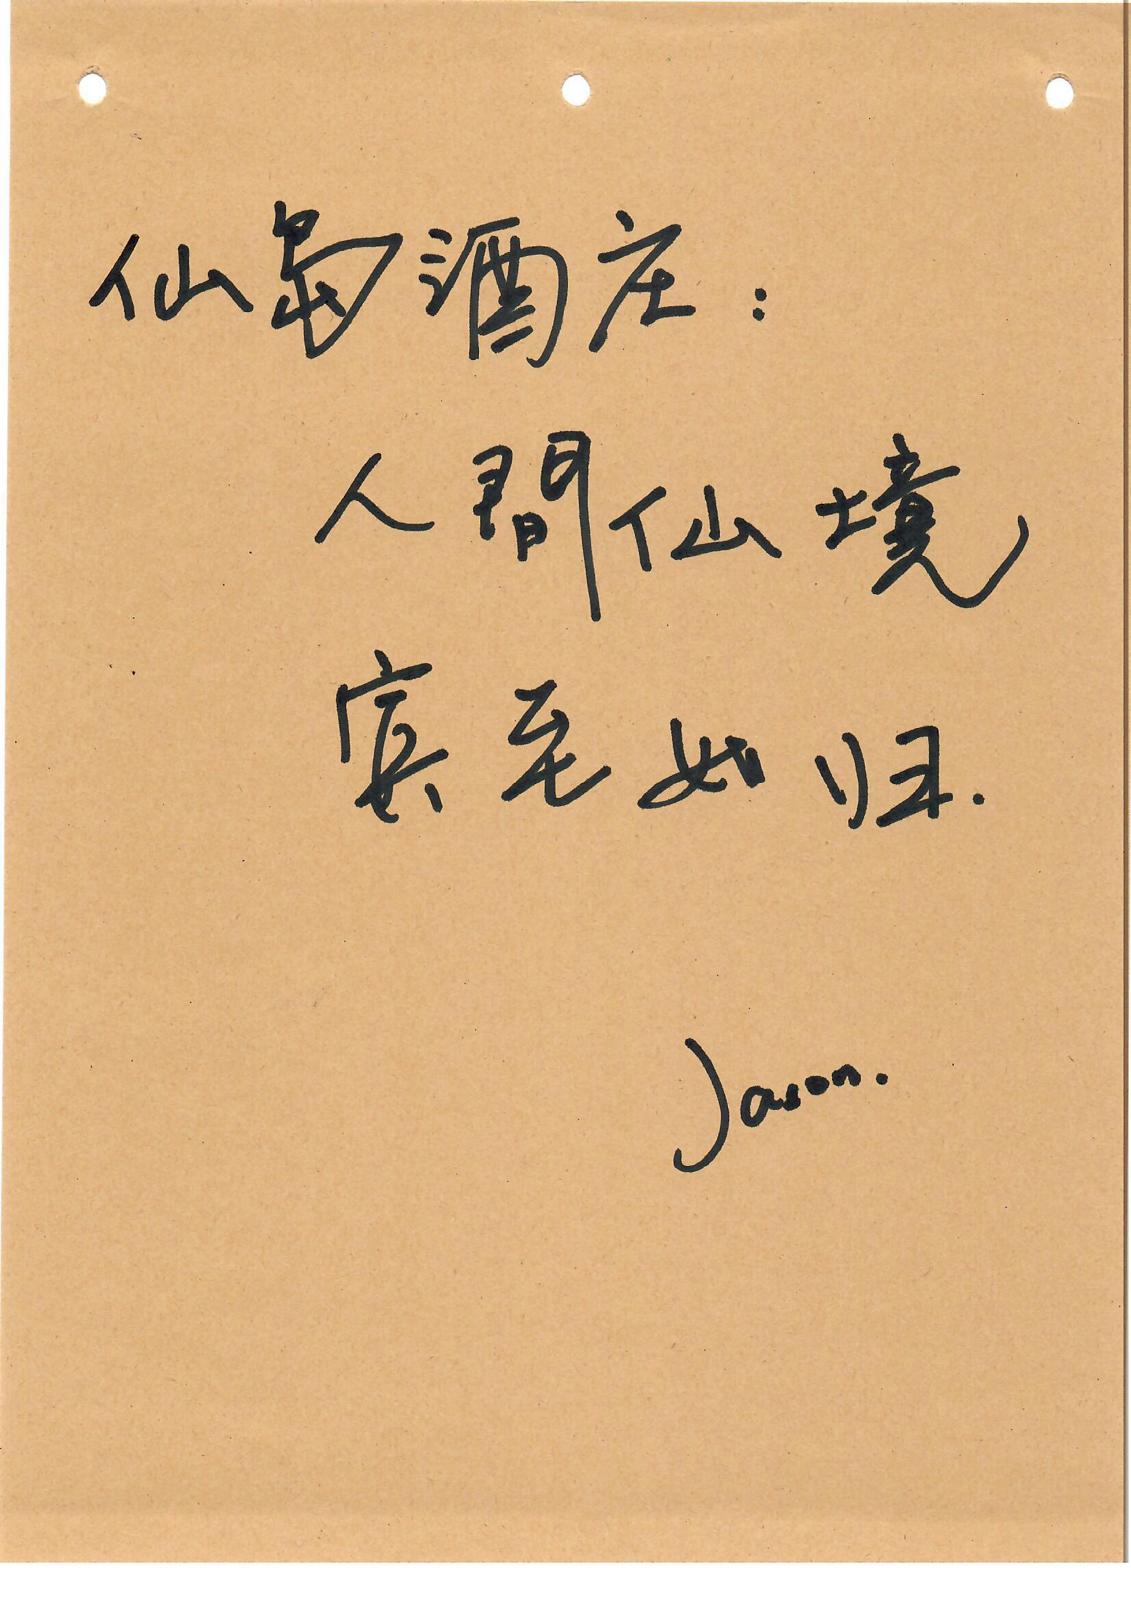 仙島酒庄：
人間仙境
宾至如归.
Jason.